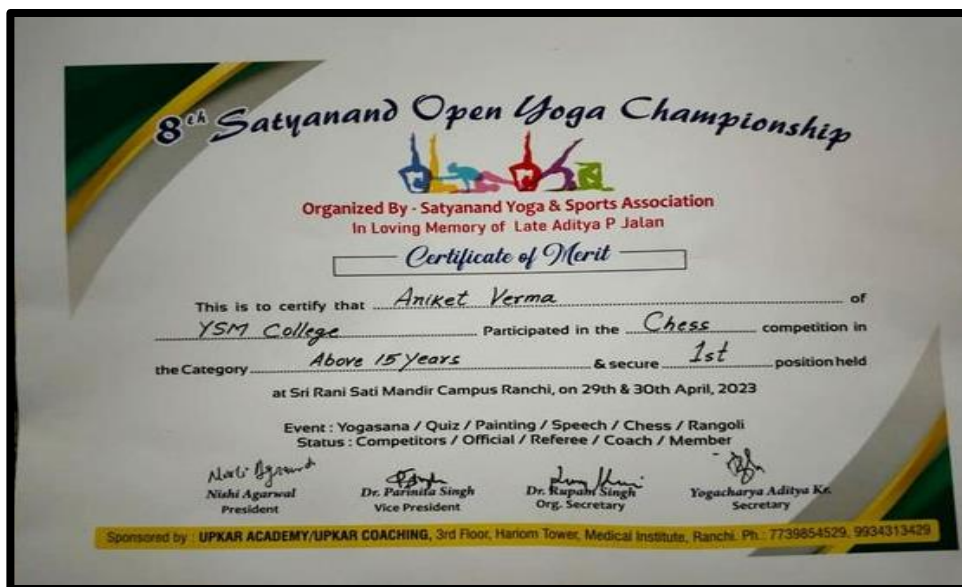 8th Satyanand Open Yoga Championship
Organized By - Satyanand Yoga & Sports Association
In Loving Memory of Late Aditya P Jalan
Certificate of Merit
This is to certify that Aniket Verma of
YSM College Participated in the Chess competition in
the Category Above 15 Years & secure 1st position held
at Sri Rani Sati Mandir Campus Ranchi, on 29th & 30th April, 2023
Event : Yogasana / Quiz / Painting / Speech / Chess / Rangoli
Status : Competitors / Official / Referee / Coach / Member
Nishi Agarwal Dr. Parinita Singh Dr. Rupam Singh Yogacharya Aditya Kr.
President Vice President Org. Secretary Secretary
Sponsored by : UPKAR ACADEMY/UPKAR COACHING, 3rd Floor, Hariom Tower, Medical Institute, Ranchi. Ph.: 7739854529, 9934313429